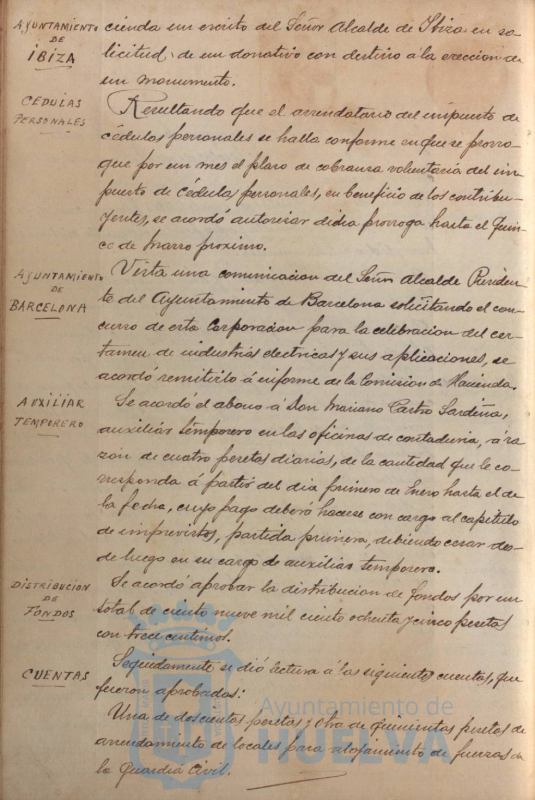 AYUNTAMIENTO
DE
IBIZA
cienda un escrito del Señor Alcalde de Ibiza en so-
licitud de un donativo con destino a la ereccion de
un monumento.
CEDULAS
PERSONALES
Resultando que el arrendatario del impuesto de
cédulas personales se halla conforme en que se prorro-
gue por un mes el plazo de cobranza voluntaria del im-
puesto de Cédulas personales, en beneficio de los contribu-
yentes, se acordó autorizar dicha prorroga hasta el quin-
ce de marzo proximo.
AYUNTAMIENTO
DE
BARCELONA
Vista una comunicacion del Señor Alcalde Presiden-
te del Ayuntamiento de Barcelona solicitando el con-
curso de esta Corporacion para la celebracion del cer-
tamen de industrias electricas y sus aplicaciones, se
acordó remitirlo á informe de la Comision de Hacienda.
AUXILIAR
TEMPORERO
Se acordó el abono á Don Mariano Castro Sardeña,
auxiliar temporero en las oficinas de contaduria, á ra-
zón de cuatro pesetas diarias, de la cantidad que le co-
rresponda á partir del dia primero de Enero hasta el de
la fecha, cuyo pago deberá hacerse con cargo al capitulo
de imprevistos, partida primera, debiendo cesar des-
de luego en su cargo de auxiliar temporero.
DISTRIBUCION
DE
FONDOS
Se acordó aprobar la distribucion de fondos por un
total de ciento nueve mil ciento ochenta y cinco pesetas
con trece centimos.
CUENTAS
Seguidamente se dió lectura á las siguientes cuentas, que
fueron aprobadas:
Una de doscientas pesetas y otra de quinientas pesetas de
arrendamiento de locales para alojamiento de fuerzas de
la Guardia Civil.
Ayuntamiento de
HUELVA